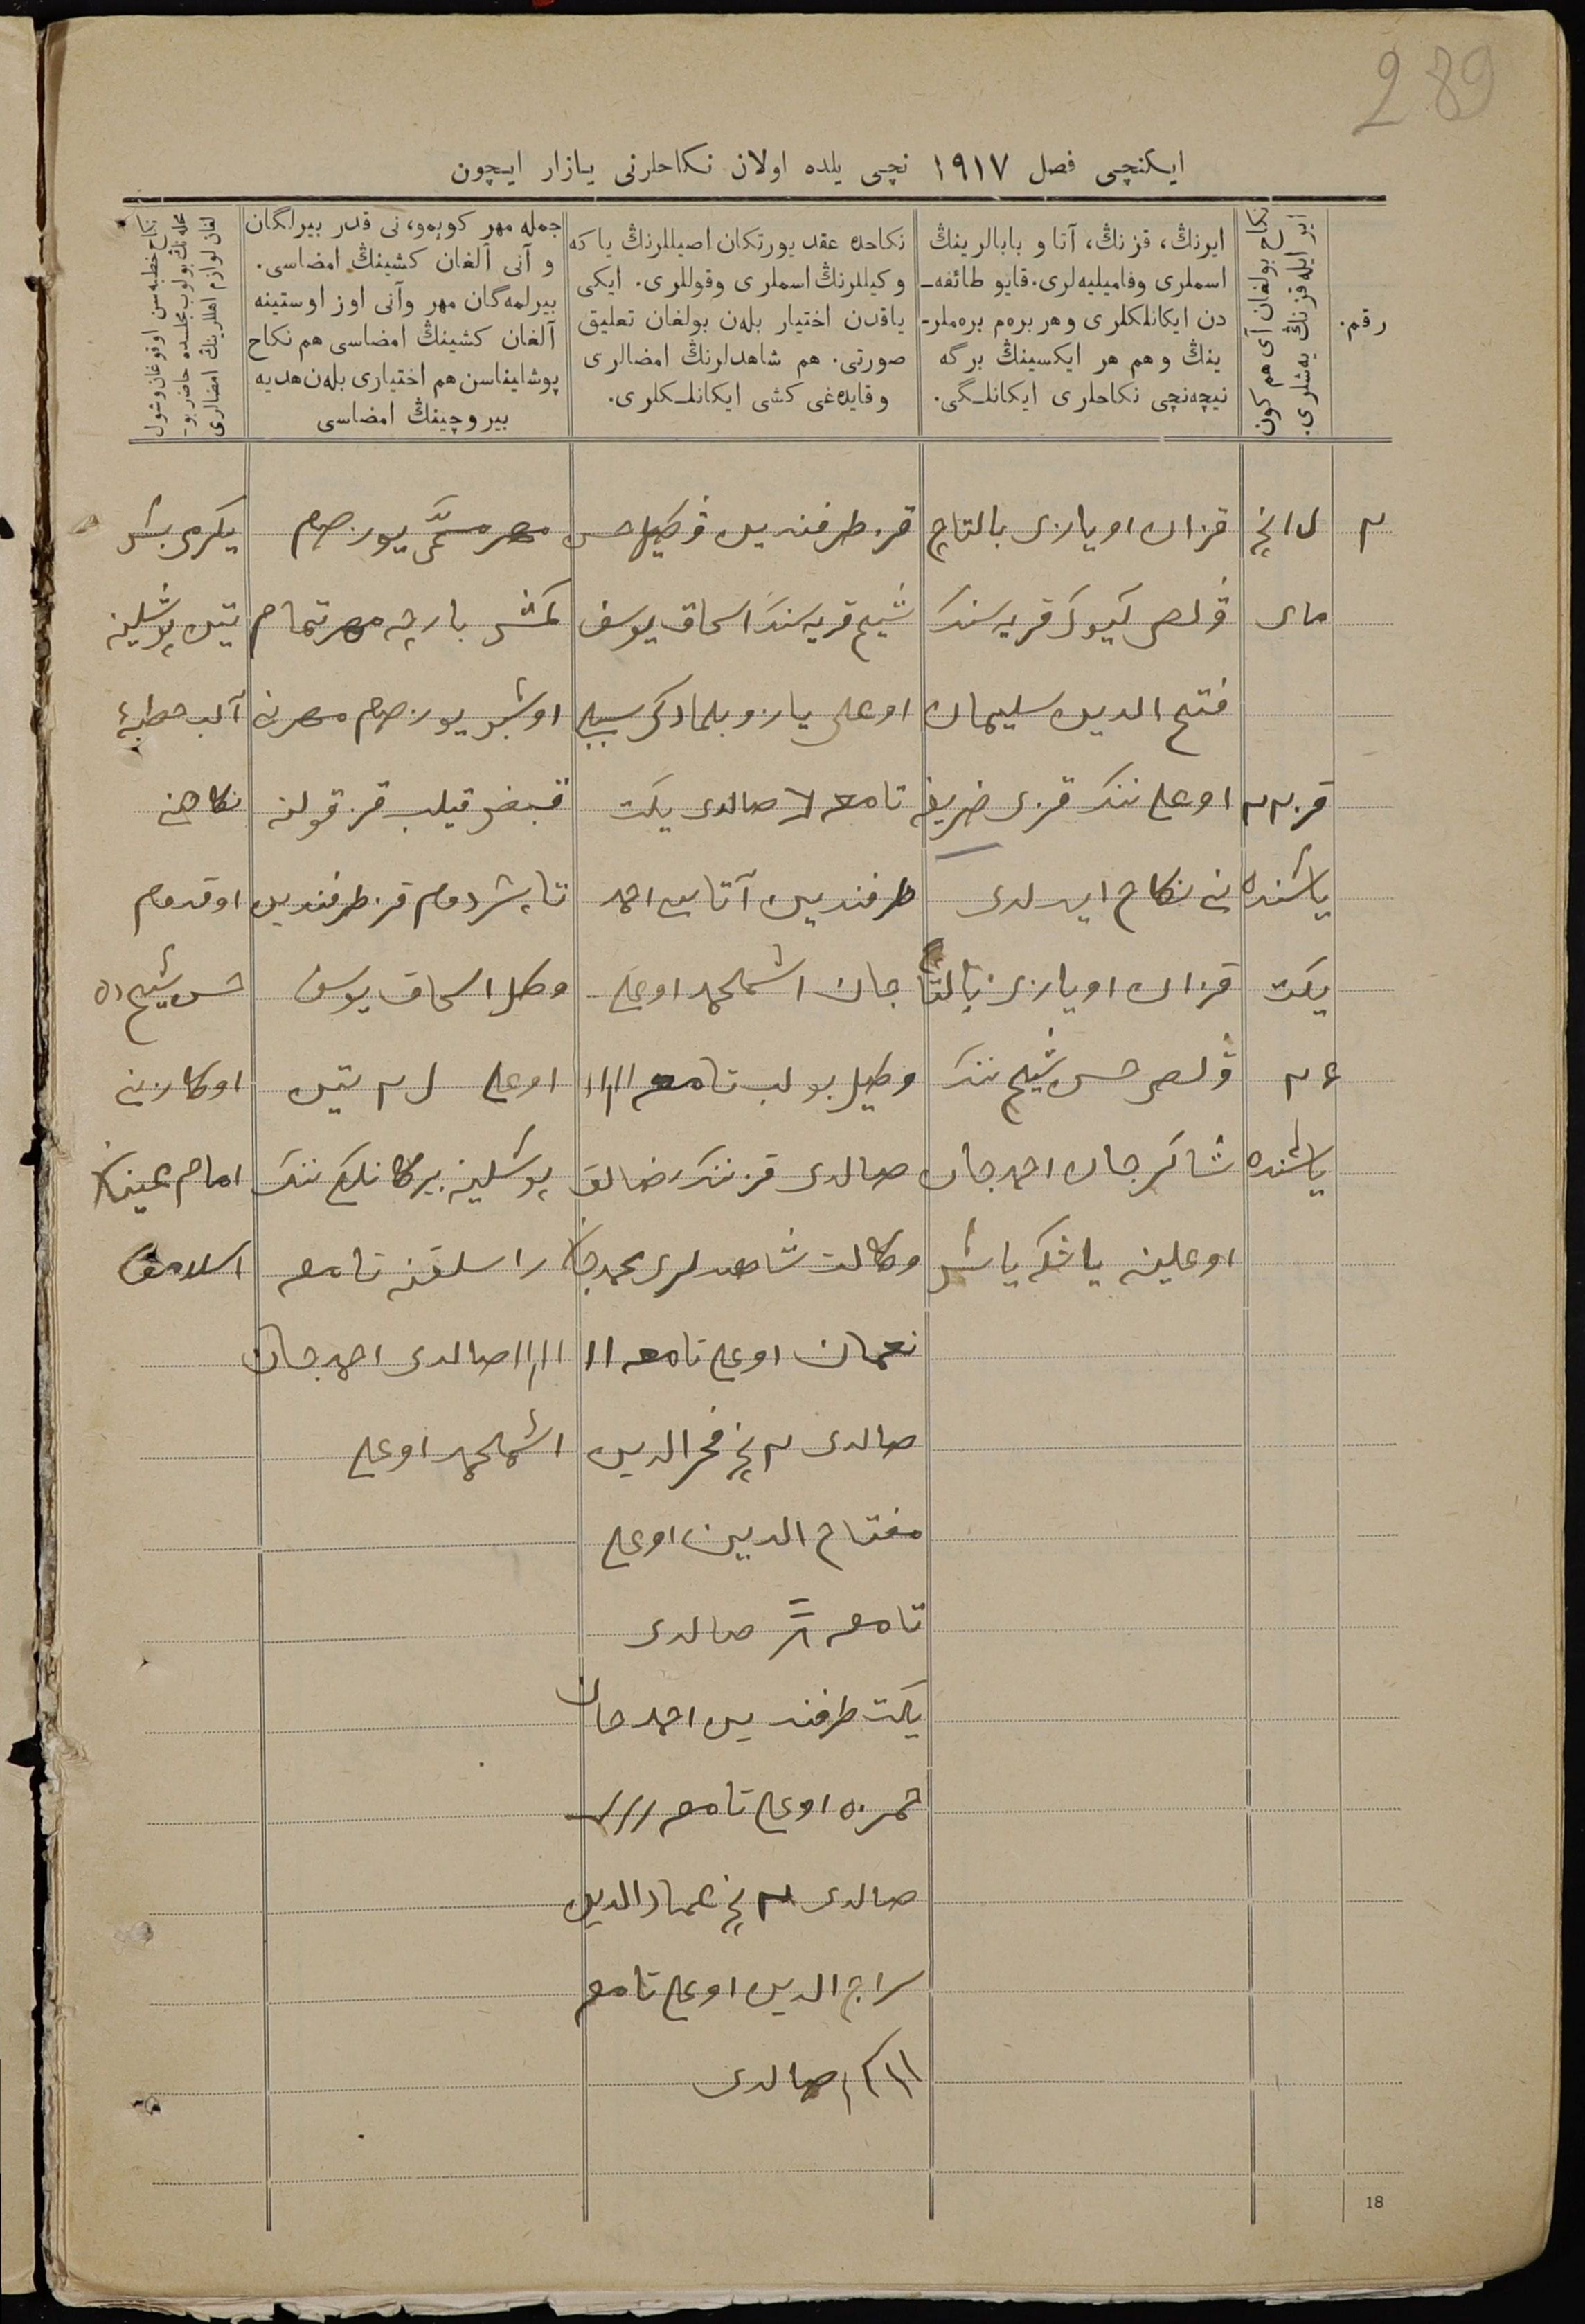 289
ایکنچی فصل ١٩١٧ نچی یلده اولان نکاحلرنی یازار ایچون
رقم.
نکاح بولغان آی هم کون
ایر ایله قزنڭ یەشلری.
ایرنڭ، قزنڭ، آتا و بابالرینڭ
اسملری وفامیلیەلری. قایو طائفه‌ـ
دن ایکانلکلری وهر برەم برەملر-
ینڭ وهم هر ایکسینڭ برگه
نیچەنچی نکاحلری ایکانلـگی.
نکاحده عقد یورتکان اصیللرنڭ یا که
وکیللرنڭ اسملری وقوللری. ایکی
یاقدن اختیار بلەن بولغان تعلیق
صورتی. هم شاهدلرنڭ امضالری
وقایدەغی کشی ایکانلـکلری.
جمله مهر کوبمو، نی قدر بیرلگان
و آنی آلغان کشینڭ امضاسی.
بیرلمەگان مهر وآنی اوز اوستینه
آلغان کشینڭ امضاسی هم نکاح
پوشلیناسن هم اختیاری بلەن هدیه
بیروچینڭ امضاسی
نکاح خطبەسن اوقوغان وشول
محلەنڭ بولوب مجلسده حاضر بو-
لغان لوازم اهللرینڭ امضالری
٢
مای
قز ٢٢
یاشنده
یکت
٢٤
یاشنده
قزان اویازی بالتاچ
ولصی کیوک قریه سند
فتح الدین سلیمان
اوغلی ننک قزی ضریفه
نی نکاح ایدلدی
قزان اویازی بالتاچ
ولصی حسن شیخ ننک
شاکرجان احمدجان
اوغلینه یاشکه یاش
قز طرفندین وکیل حسن
شیخ قریه سند اسحاق یوسف
اوغلی یازو بلمادکی سببلی
تامغه صالدی یکت
طرفندین آتاسی احمد
جان اشمحمد اوغلی
وکیل بولب تامغه
صالدی قز ننک رضالق
وکالت شاهدلری محمدجان
نعمان اوغلی تامغه
صالدی ٢ نچی فخرالدین
مفتاح الدین اوغلی
تامغه صالدی
یکت طرفندین احمدجان
حمزه اوغلی تامغه
صالدی ٢ نچی عماد الدین
سراج الدین اوغلی تامغه
صالدی
مهر مسمّی یوز صوم
کمش بارچه مهر تمام
اوشبو یوز صوم مهرنی
قبض قیلب قز قولنه
تابشردم قز طرفندین
وکیل اسحاق یوسف
اوغلی
پوشلینه بیرکانلکی ننک
راسلقنه تامغه
صالدی احمدجان
اشمحمد اوغلی
یکرمی بش
تین پوشلینه
آلب خطبهٔ
نکاحنی
اوقدم
حسن شیخ ده
اوکازنی
امام
18